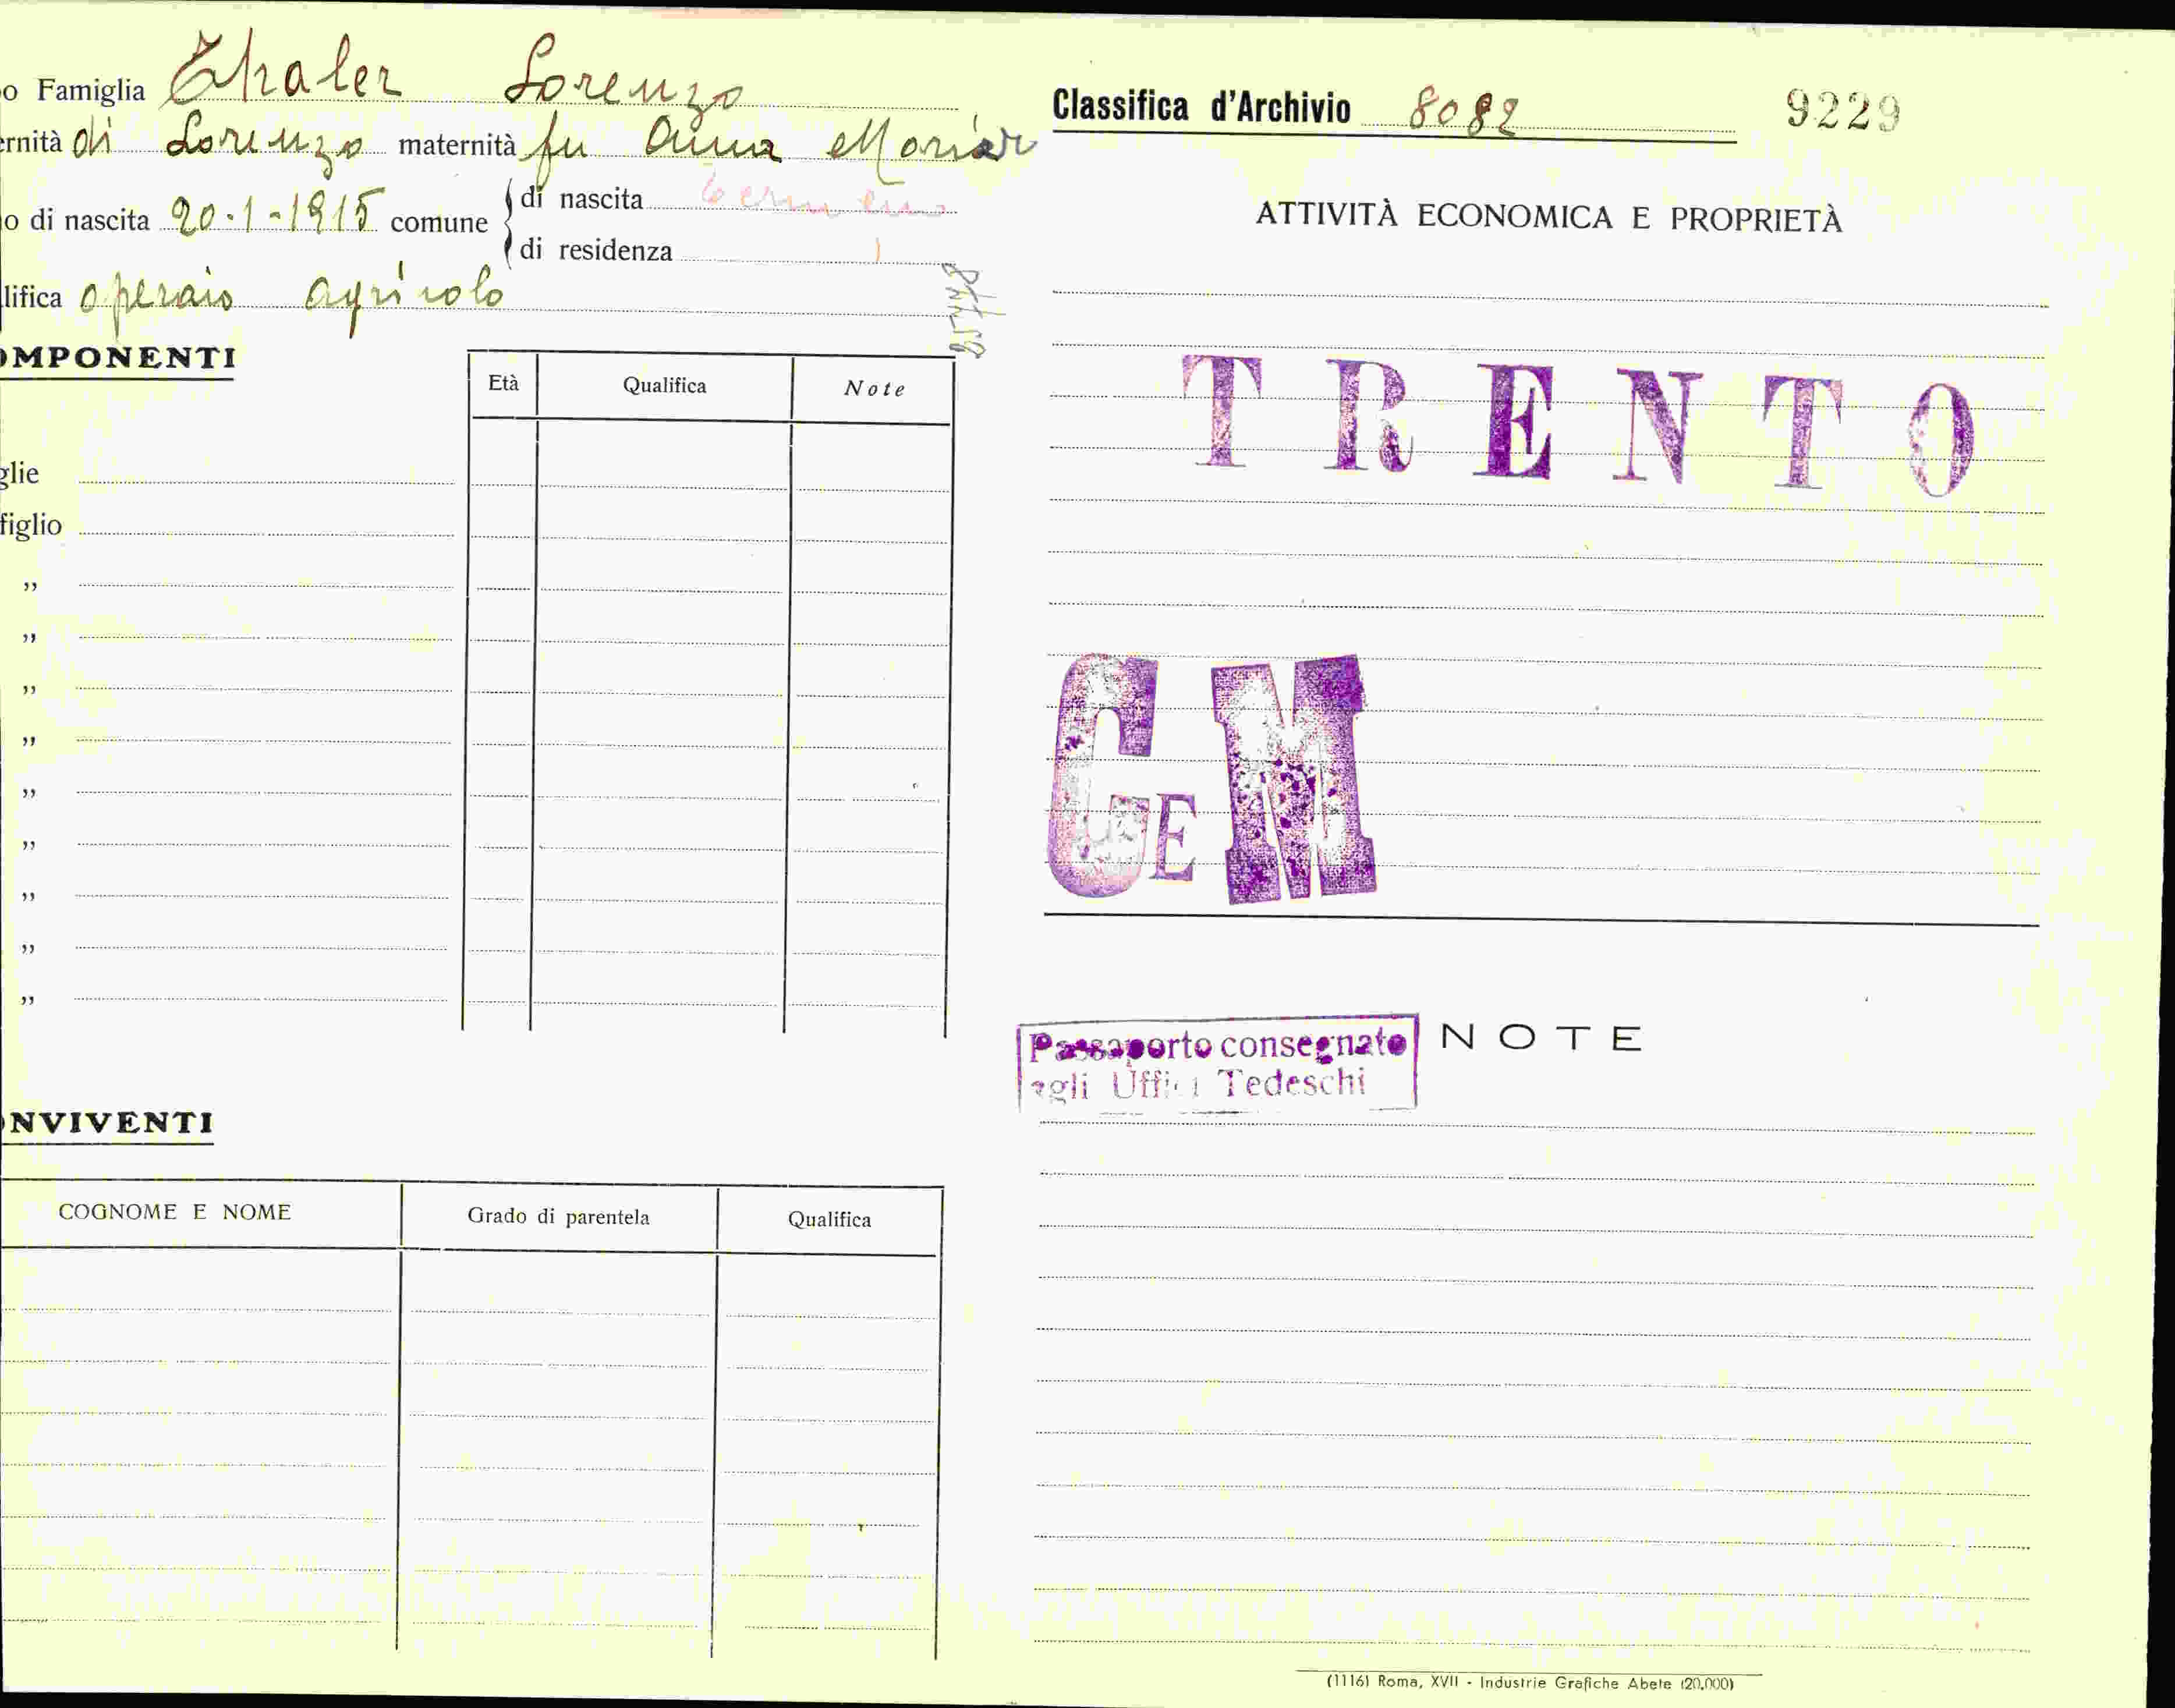 o Famiglia Thaler Lorenzo
ernità di Lorenzo maternità fu Anna
o di nascita 20-1-1915 comune
di nascita
di residenza
lifica operaio agricolo
OMPONENTI
Età Qualifica Note
glie
figlio
"
"
"
"
"
"
"
"
"
ONVIVENTI
COGNOME E NOME Grado di parentela Qualifica
Classifica d'Archivio 8082 9229
ATTIVITÀ ECONOMICA E PROPRIETÀ
TRENTO
GEM
Passaporto consegnato
agli Uffici Tedeschi
NOTE
(1116) Roma, XVII - Industrie Grafiche Abete (20.000)